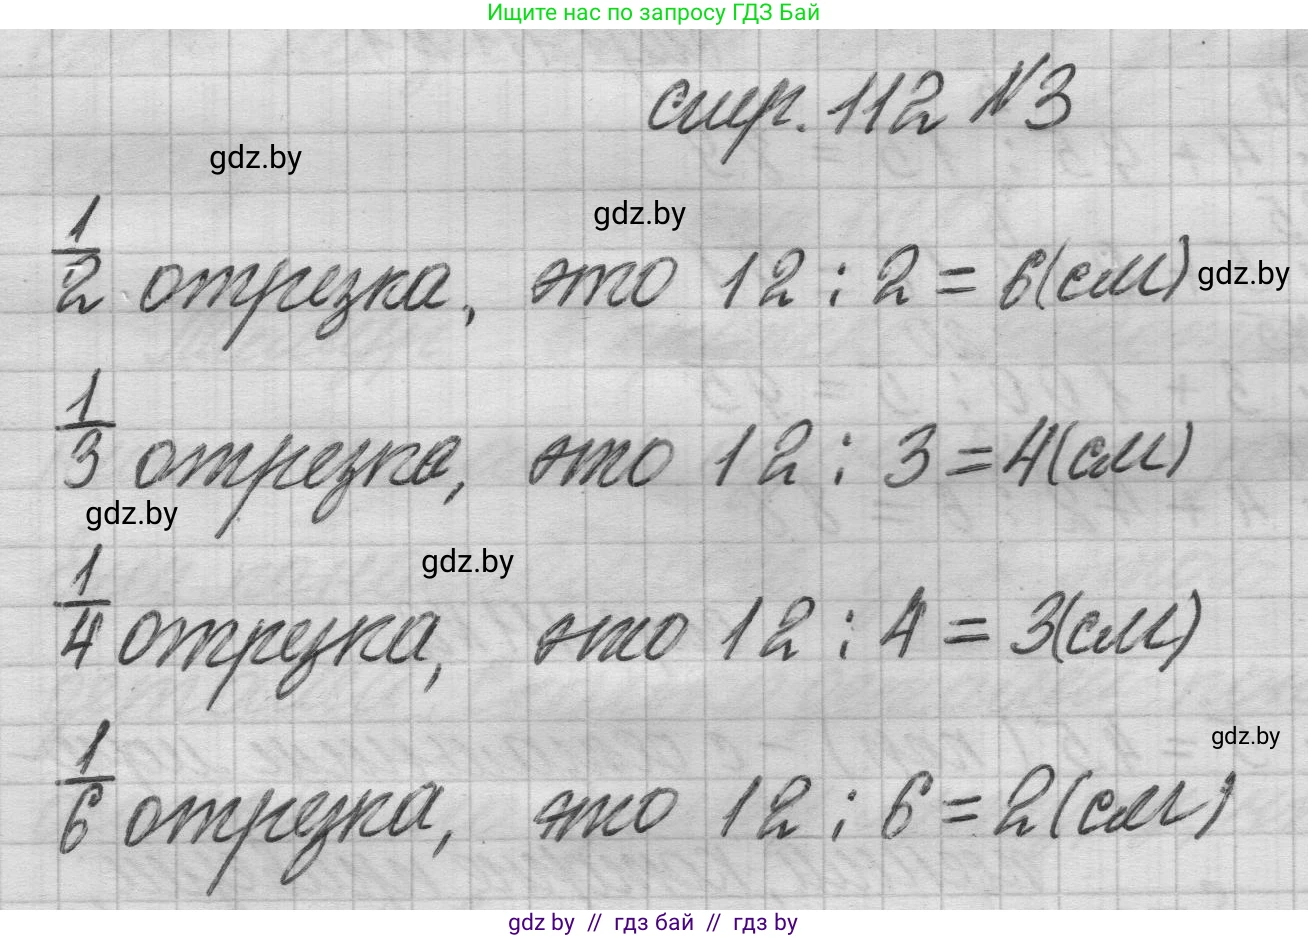 Ищите нас по запросу ГДЗ Бай
стр. 112 №3
gdz.by
gdz.by
1/2 отрезка, это 12 : 2 = 6(см)
gdz.by
1/3 отрезка, это 12 : 3 = 4(см)
gdz.by
gdz.by
1/4 отрезка, это 12 : 4 = 3(см)
gdz.by
1/6 отрезка, это 12 : 6 = 2(см)
gdz by // гдз бай // гдз by